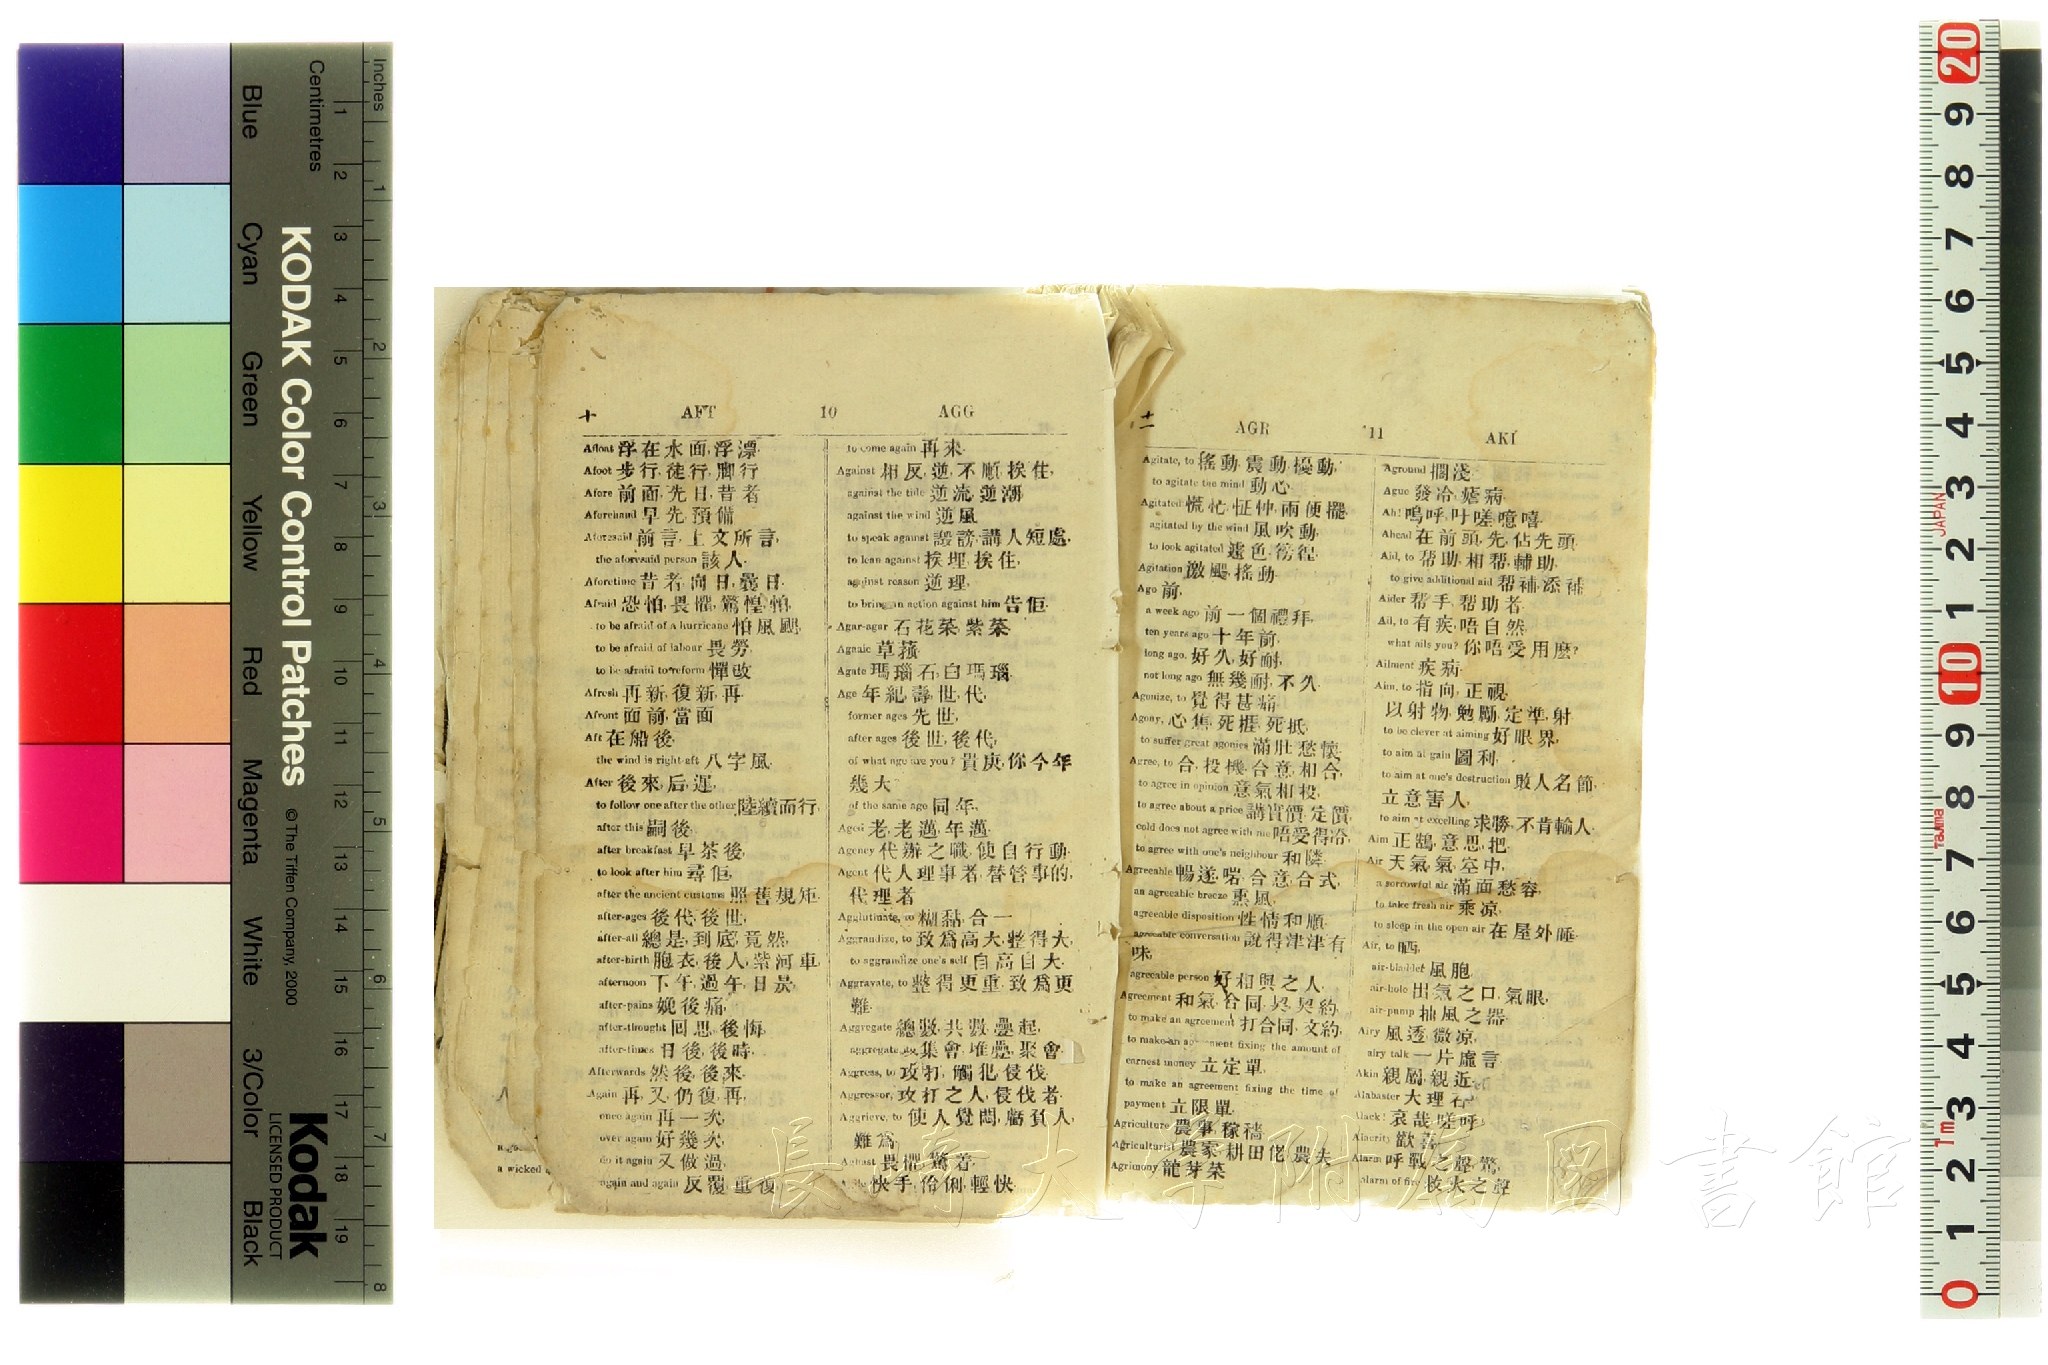 Inches
Centimetres
KODAK Color Control Patches
© The Tiffen Company, 2000
Kodak
LICENSED PRODUCT
Blue
Cyan
Green
Yellow
Red
Magenta
White
3/Color
Black
十
AFT
10
AGG
Afloat 浮在水面,浮漂
Afoot 步行,徒行,脚行
Afore 前面,先日,昔者
Aforehand 早先預備
Aforesaid 前言,上文所言,
the aforesaid person 該人.
Aforetime 昔者,向日,曩日.
Afraid 恐怕,畏懼,驚惶,怕,
to be afraid of a hurricane 怕風颶
to be afraid of labour 畏勞,
to be afraid to reform 憚改
Afresh 再新,復新,再
Afront 面前,當面
Aft 在船後,
the wind is right-aft 八字風,
After 後來,后,遲,
to follow one after the other 陸續而行,
after this 嗣後,
after breakfast 早茶後,
to look after him 尋佢,
after the ancient customs 照舊規矩
after-ages 後代,後世,
after-all 總是,到底,竟然,
after-birth 胞衣,後人,紫河車,
afternoon 下午,過午,日昃,
after-pains 娩後痛,
after-thought 回思,後悔,
after-times 日後,後時,
Afterwards 然後,後來,
Again 再,又,仍復,再,
once again 再一次,
over again 好幾次,
do it again 又做過,
again and again 反覆,重復
to come again 再來.
Against 相反,逆,不順,挨住,
against the tide 逆流,逆潮
against the wind 逆風
to speak against 譭謗,講人短處,
to lean against 挨埋,挨住,
against reason 逆理,
to bring an action against him 告佢,
Agar-agar 石花菜,紫菜
Agaric 草蕦
Agate 瑪瑙石,白瑪瑙
Age 年紀,壽,世,代,
former ages 先世,
after ages 後世,後代,
of what age are you? 貴庚,你今年
幾大
of the same age 同年,
Aged 老,老邁,年邁,
Agency 代辦之職,使自行動
Agent 代人理事者,替管事的,
代理者
Agglutinate, to 糊黏,合一
Aggrandize, to 致爲高大,整得大,
to aggrandize one's self 自高自大
Aggravate, to 整得更重,致爲更
難,
Aggregate 總數,共數,疊起,
aggregate 集會,堆疊,聚會
Aggress, to 攻打,觸犯,侵伐
Aggressor, 攻打之人,侵伐者,
Aggrieve, to 使人覺悶,虧負人,
難爲
Aghast 畏懼,驚着
快手,伶俐,輕快
十一
AGR
11
AKI
Agitate, to 搖動,震動,擾動,
to agitate the mind 動心
Agitated 慌忙,怔忡,兩便擺
agitated by the wind 風吹動,
to look agitated
Agitation 激颺,搖動
Ago 前,
a week ago 前一個禮拜,
ten years ago 十年前,
long ago, 好久,好耐,
not long ago 無幾耐,不久
Agonize, to 覺得甚痛
Agony, 心焦,死捱,死抵
to suffer great agonies 滿肚愁懷
Agree, to 合,投機,合意,相合,
to agree in opinion 意氣相投,
to agree about a price 講實價,定價
cold does not agree with me 唔受得冷
to agree with one's neighbour 和隣
Agreeable 暢遂,啱,合意,合式,
an agreeable breeze 熏風,
agreeable disposition 性情和順
agreeable conversation 說得津津有
味,
agreeable person 好相與之人
Agreement 和氣,合同,契約
to make an agreement 打合同,文約,
to make an agreement fixing the amount of
earnest money 立定單,
to make an agreement fixing the time of
payment 立限單
Agriculture 農事,稼穡
Agricultural 農家,耕田佬,農夫
Agrimony 龍芽菜
Aground 擱淺
Ague 發冷,瘧病
Ah! 嗚呼,吁嗟,噫嘻
Ahead 在前頭,先,佔先頭
Aid, to 幇助,相幇,輔助,
to give additional aid 幇補,添補
Aider 幇手,幇助者
Ail, to 有疾,唔自然
what ails you? 你唔受用麼?
Ailment 疾病
Aim, to 指向,正視,
以射物,勉勵,定準,射
to be clever at aiming 好眼界,
to aim at gain 圖利,
to aim at one's destruction 敗人名節,
立意害人,
to aim at excelling 求勝,不肯輸人
Aim 正鵠,意思,把
Air 天氣,氣,空中,
a sorrowful air 滿面愁容
to take fresh air 乘凉,
to sleep in the open air 在屋外睡
Air, to 晒
air-bladder 風胞
air-hole 出氣之口,氣眼,
air-pump 抽風之器
Airy 風透,微凉,
airy talk 一片虛言
Akin 親屬,親近
Alabaster 大理石
Alack! 哀哉,嗟呼
Alacrity 歡喜
Alarm 呼戰之聲,驚
alarm of fire 救火之聲
a wicked
長崎大学附属図書館
JAPAN
Tajima
1m